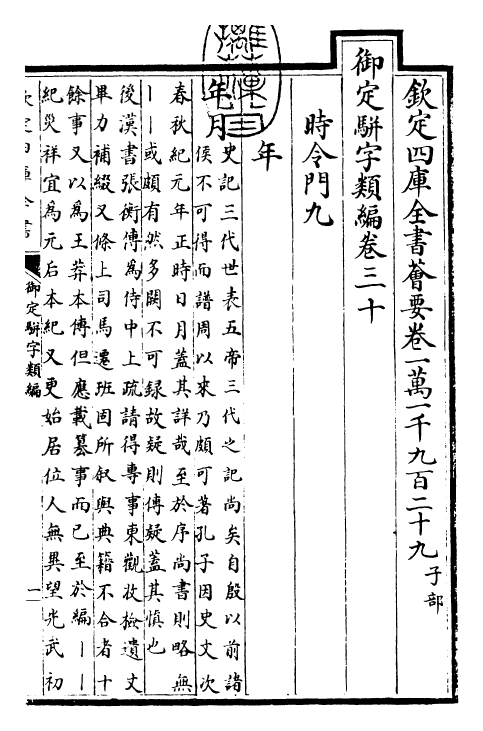 欽定四庫全書薈要卷一萬一千九百二十九子部
御定駢字類編卷三十
時令門九
年
年月
史記三代世表五帝三代之記尚矣自殷以前諸
侯不可得而譜周以來乃頗可著孔子因史文次
春秋紀元年正時日月蓋其詳哉至於序尚書則略無
丨丨或頗有然多闕不可録故疑則傳疑蓋其慎也
後漢書張衡傳為侍中上疏請得專事東觀收檢遺文
畢力補綴又條上司馬遷班固所叙與典籍不合者十
餘事又以為王莽本傳但應載篡事而已至於編丨丨
紀災祥宜為元后本紀又更始居位人無異望光武初
欽定四庫全書
御定駢字類編
一